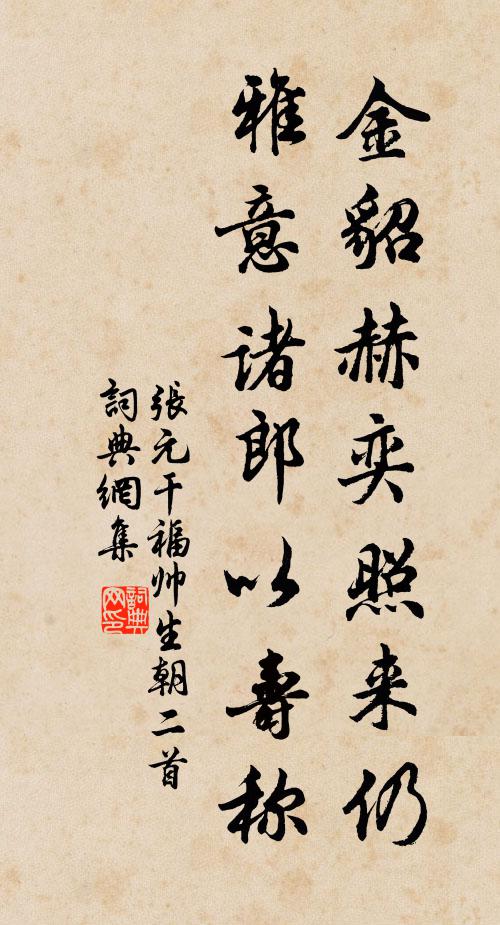 金貂赫奕照来仍
雅意诸郎以壽称
張元干福帅生朝二首
詞典網集
詞典网印